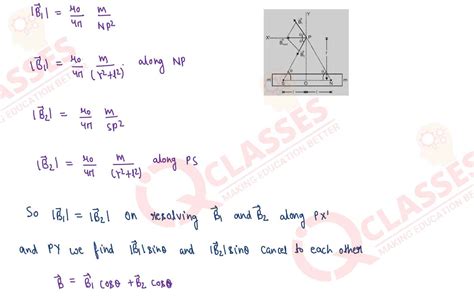 |B⃗₁| = μ₀/4π m/NP²
|B⃗₁| = μ₀/4π m/(r²+l²) along NP
|B⃗₂| = μ₀/4π m/SP²
|B⃗₂| = μ₀/4π m/(r²+l²) along PS
So |B⃗₁| = |B⃗₂| on resolving B⃗₁ and B⃗₂ along PX'
and PY we find |B⃗₁|sinθ and |B⃗₂|sinθ cancel to each other
B⃗ = B⃗₁ cosθ + B⃗₂ cosθ
Q CLASSES
MAKING EDUCATION BETTER